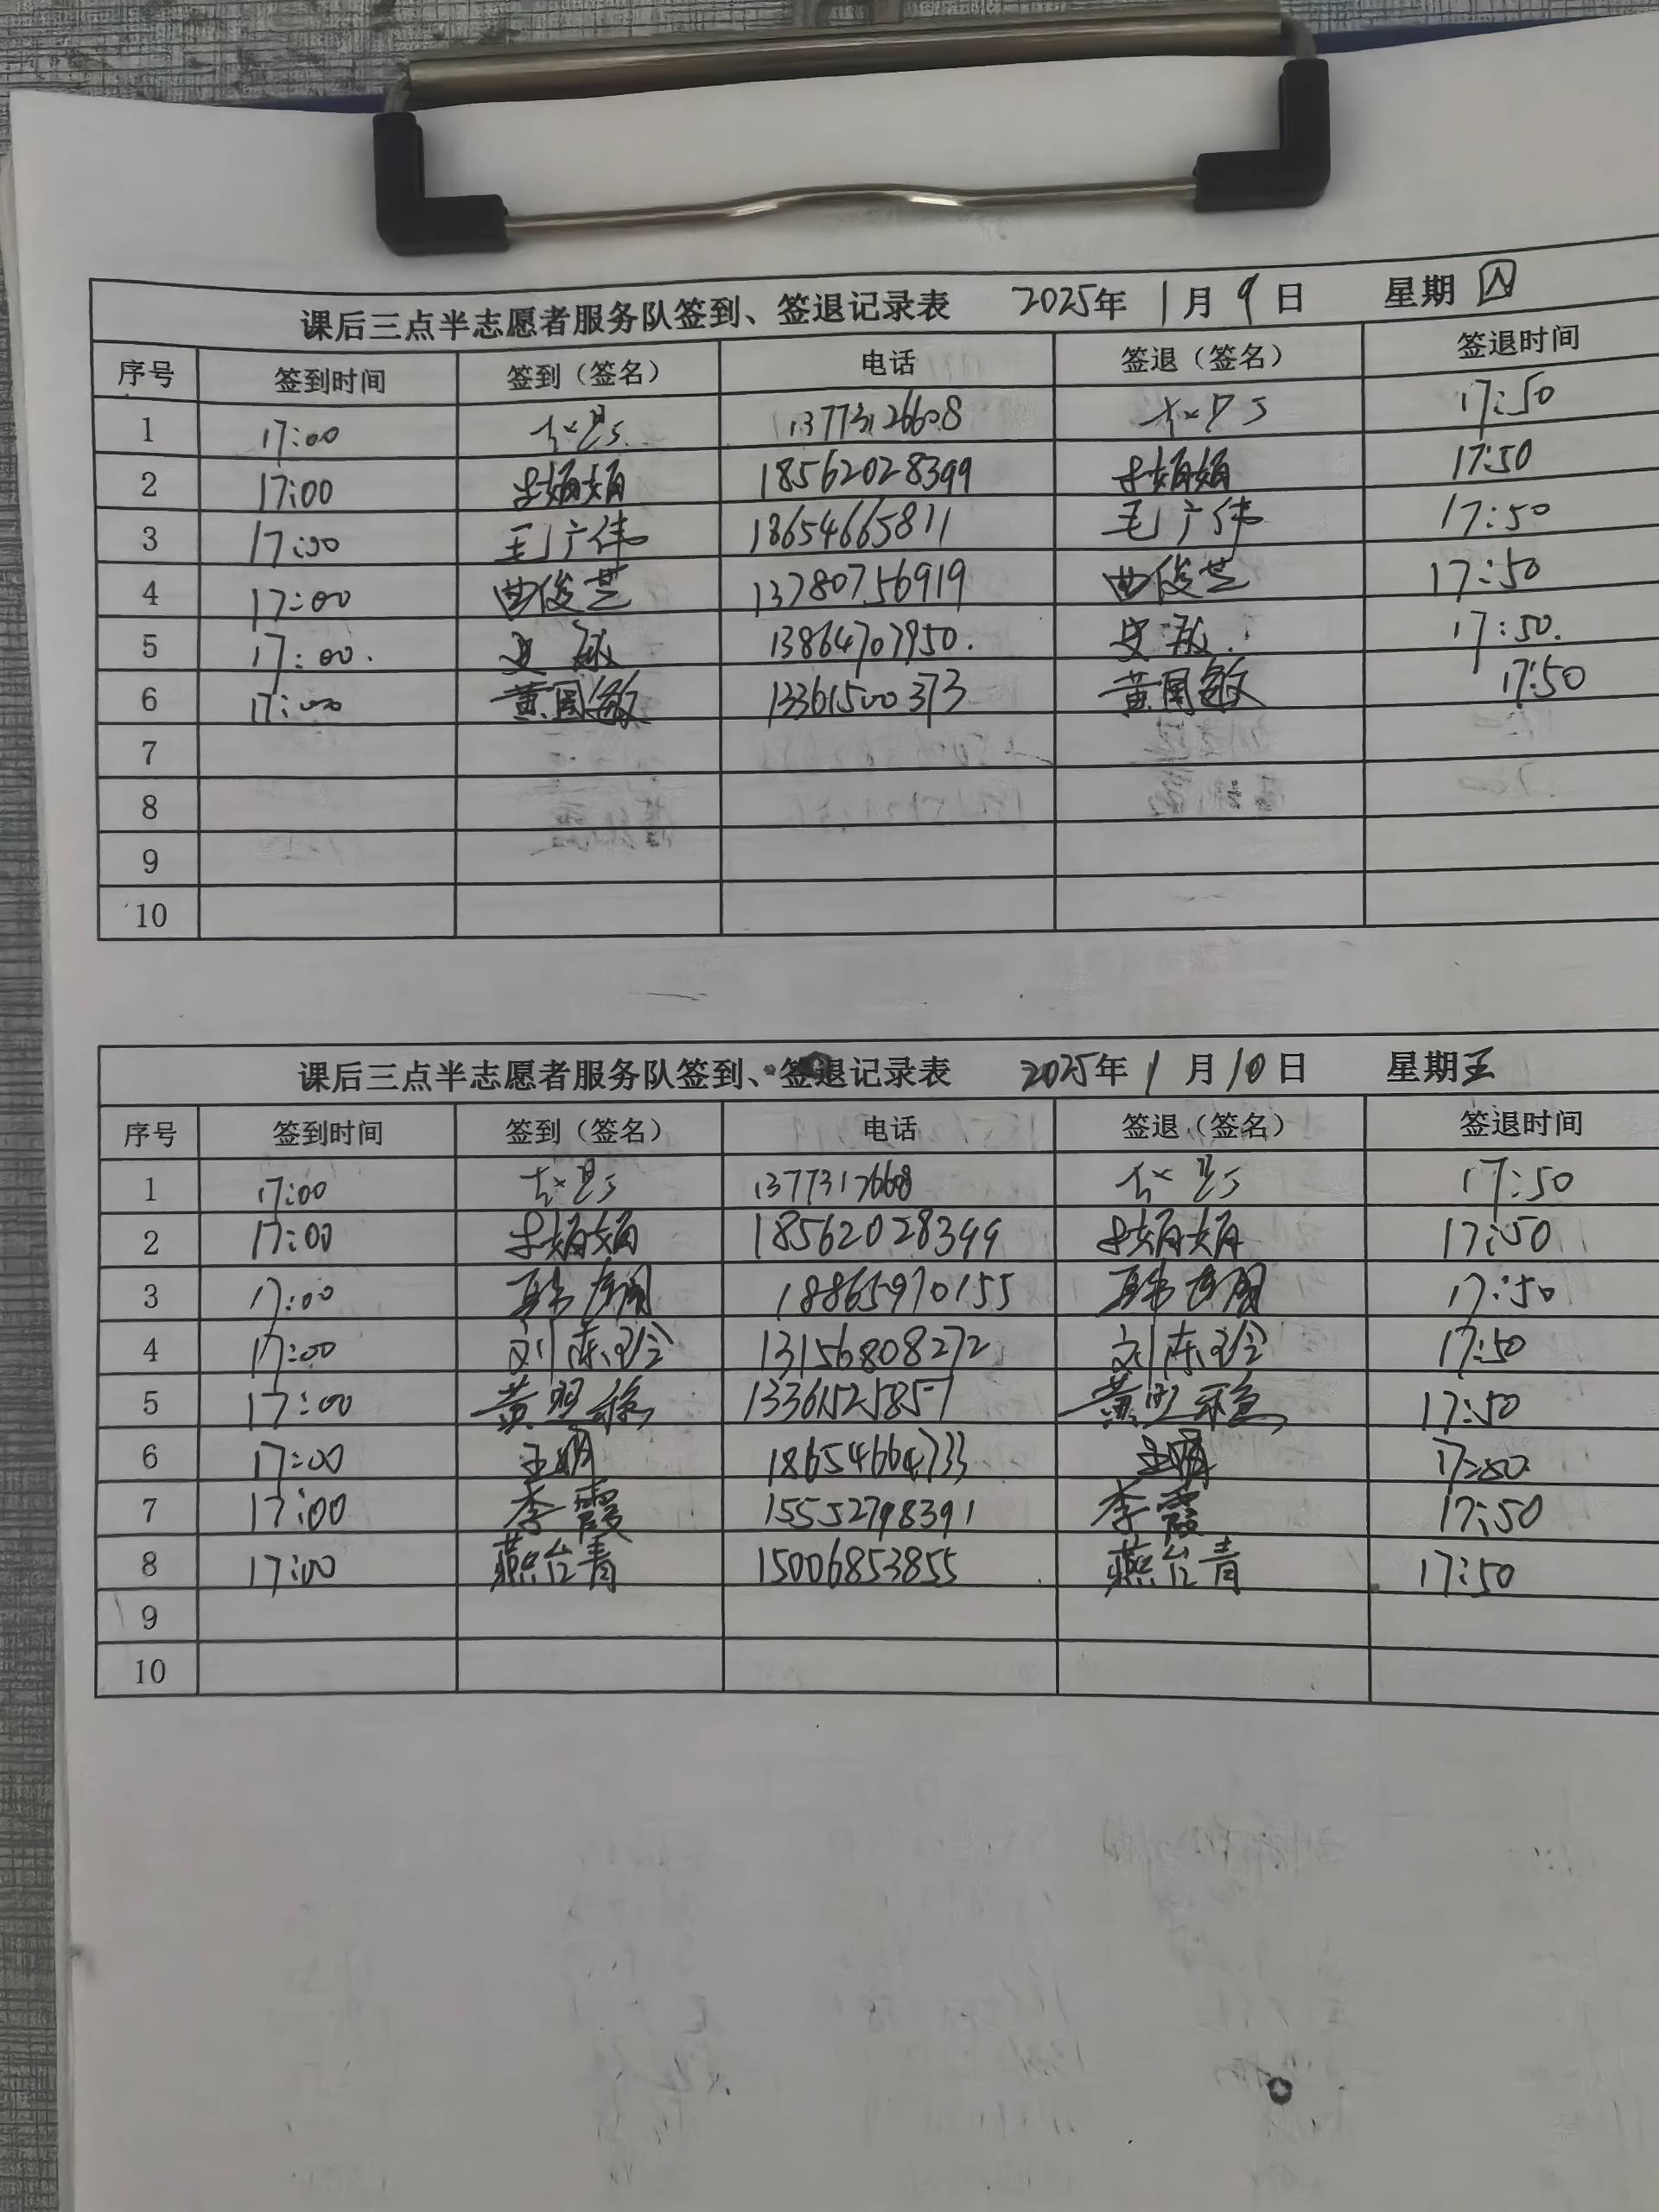 课后三点半志愿者服务队签到、签退记录表 2025年 1月 9日 星期四
序号 签到时间 签到（签名） 电话 签退（签名） 签退时间
1 17:00 13773126608 17:50
2 17:00 娟娟 18562028399 娟娟 17:50
3 17:00 王广伟 18654665811 王广伟 17:50
4 17:00 曲俊芝 13780756919 曲俊芝 17:50
5 17:00. 史敏 13864707950. 史敏 17:50.
6 17:00 黄国敏 13361500373 黄国敏 17:50
7
8
9
10
课后三点半志愿者服务队签到、签退记录表 2025年 1月 10日 星期五
序号 签到时间 签到（签名） 电话 签退（签名） 签退时间
1 17:00 13773126608 17:50
2 17:00 娟娟 18562028399 娟娟 17:50
3 17:00 18865970155 17:50
4 17:00 刘东玲 13156808272 刘东玲 17:50
5 17:00 黄 13361525857 黄 17:50
6 17:00 王娟 18654664733 王娟 17:50
7 17:00 李霞 15552798391 李霞 17:50
8 17:00 燕台青 15006853855 燕台青 17:50
9
10